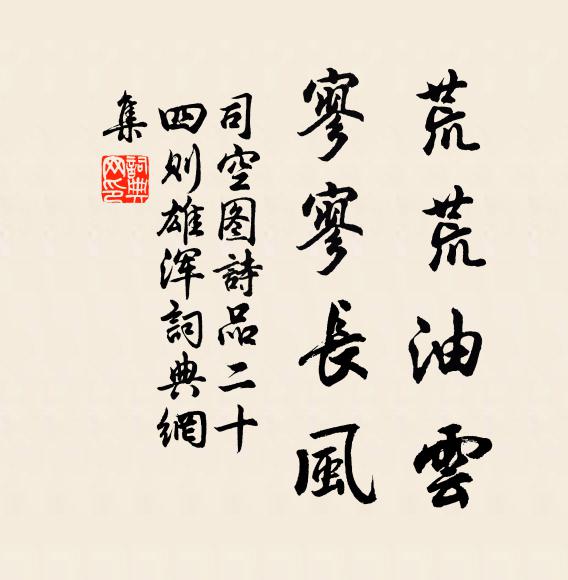 荒荒油雲
寥寥長風
司空图詩品二十
四则雄浑詞典網
集
詞典
网印